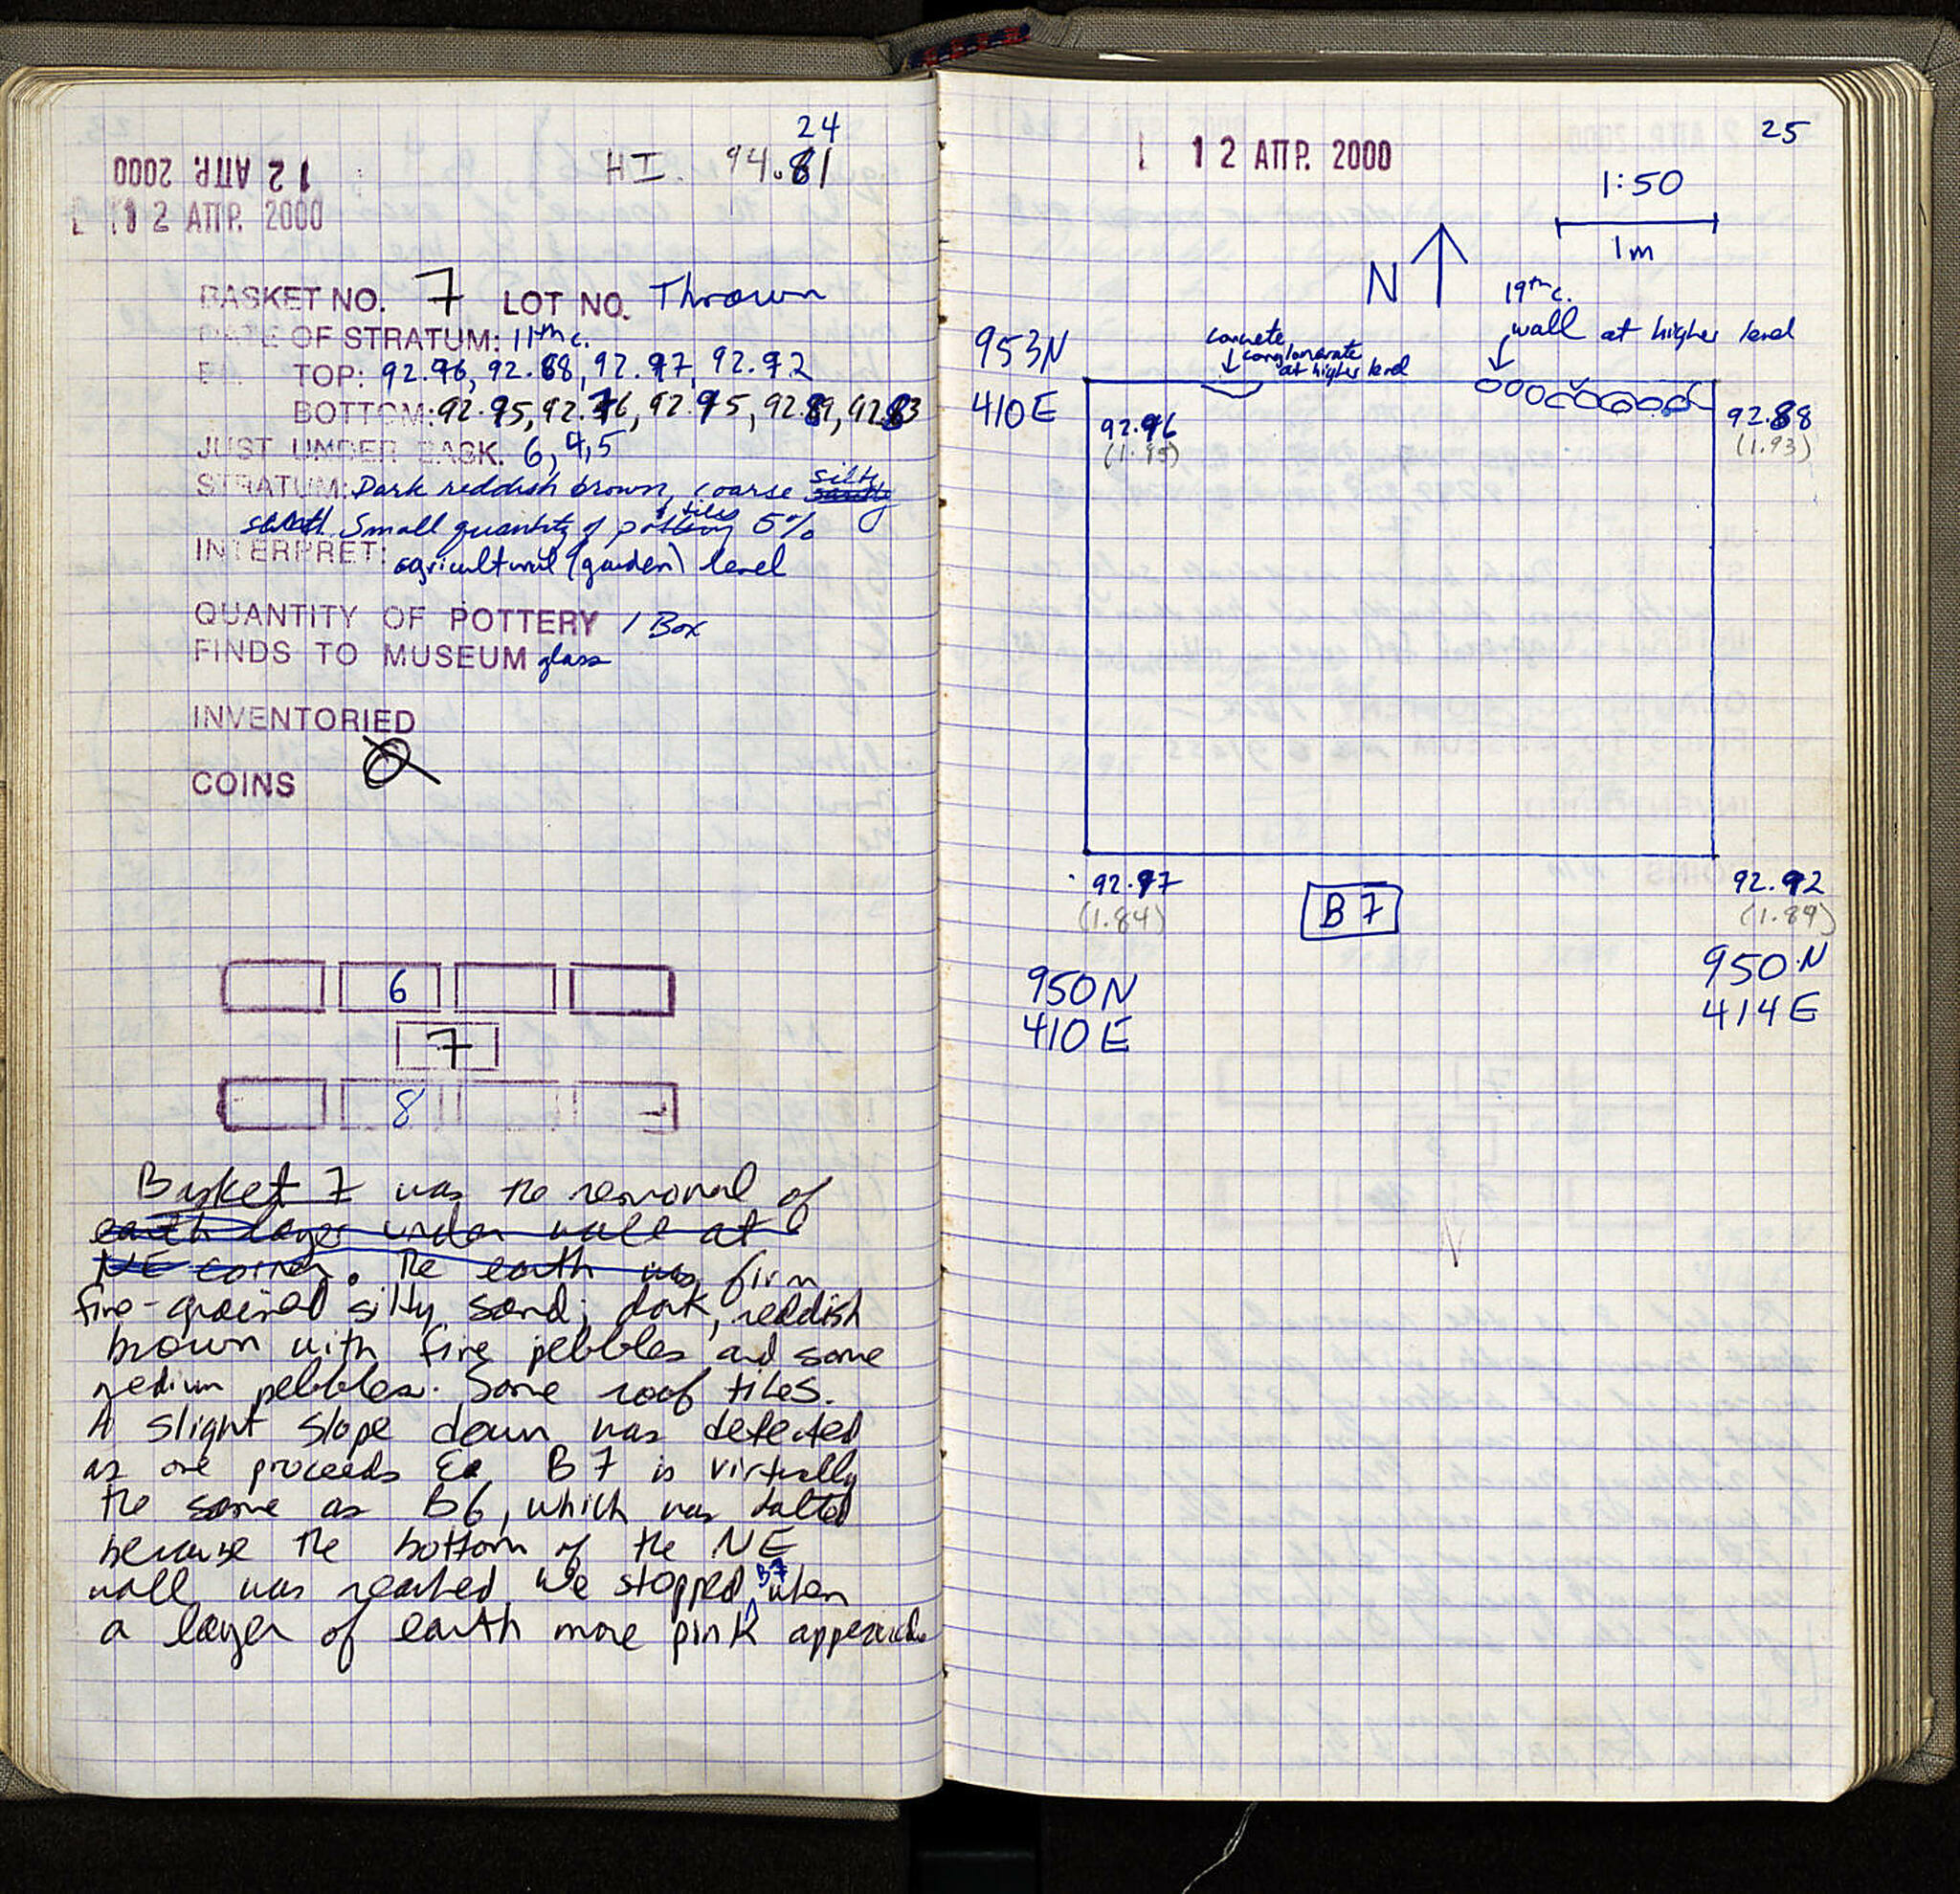 24
HI 94.81
12 ΑΠΡ. 2000
12 ΑΠΡ. 2000
BASKET NO. 7 LOT NO. Thrown
DATE OF STRATUM: 11th c.
EL. TOP: 92.96, 92.88, 92.97, 92.92
BOTTOM: 92.95, 92.76, 92.95, 92.89, 92.83
JUST UNDER BASK. 6, 4, 5
STRATUM: Dark reddish brown, coarse silty sandy
Small quantity of pottery + tiles 5%
INTERPRET: agricultural (garden) level
QUANTITY OF POTTERY 1 Box
FINDS TO MUSEUM glass
INVENTORIED
COINS
6
7
8
Basket 7 was the removal of
earth layer under wall at
NE corner. The earth was firm
fine-grained silty sand; dark, reddish
brown with fine pebbles and some
medium pebbles. Some roof tiles.
A slight slope down was detected
as one proceeds E. B7 is virtually
the same as B6, which was halted
because the bottom of the NE
wall was reached We stopped B7 when
a layer of earth more pink appeared
25
12 ΑΠΡ. 2000
1:50
1m
N
19th c.
wall at higher level
concrete
conglomerate
at higher level
953N
410E
92.96
(1.85)
92.88
(1.93)
92.97
(1.84)
B7
92.92
(1.89)
950N
410E
950N
414E